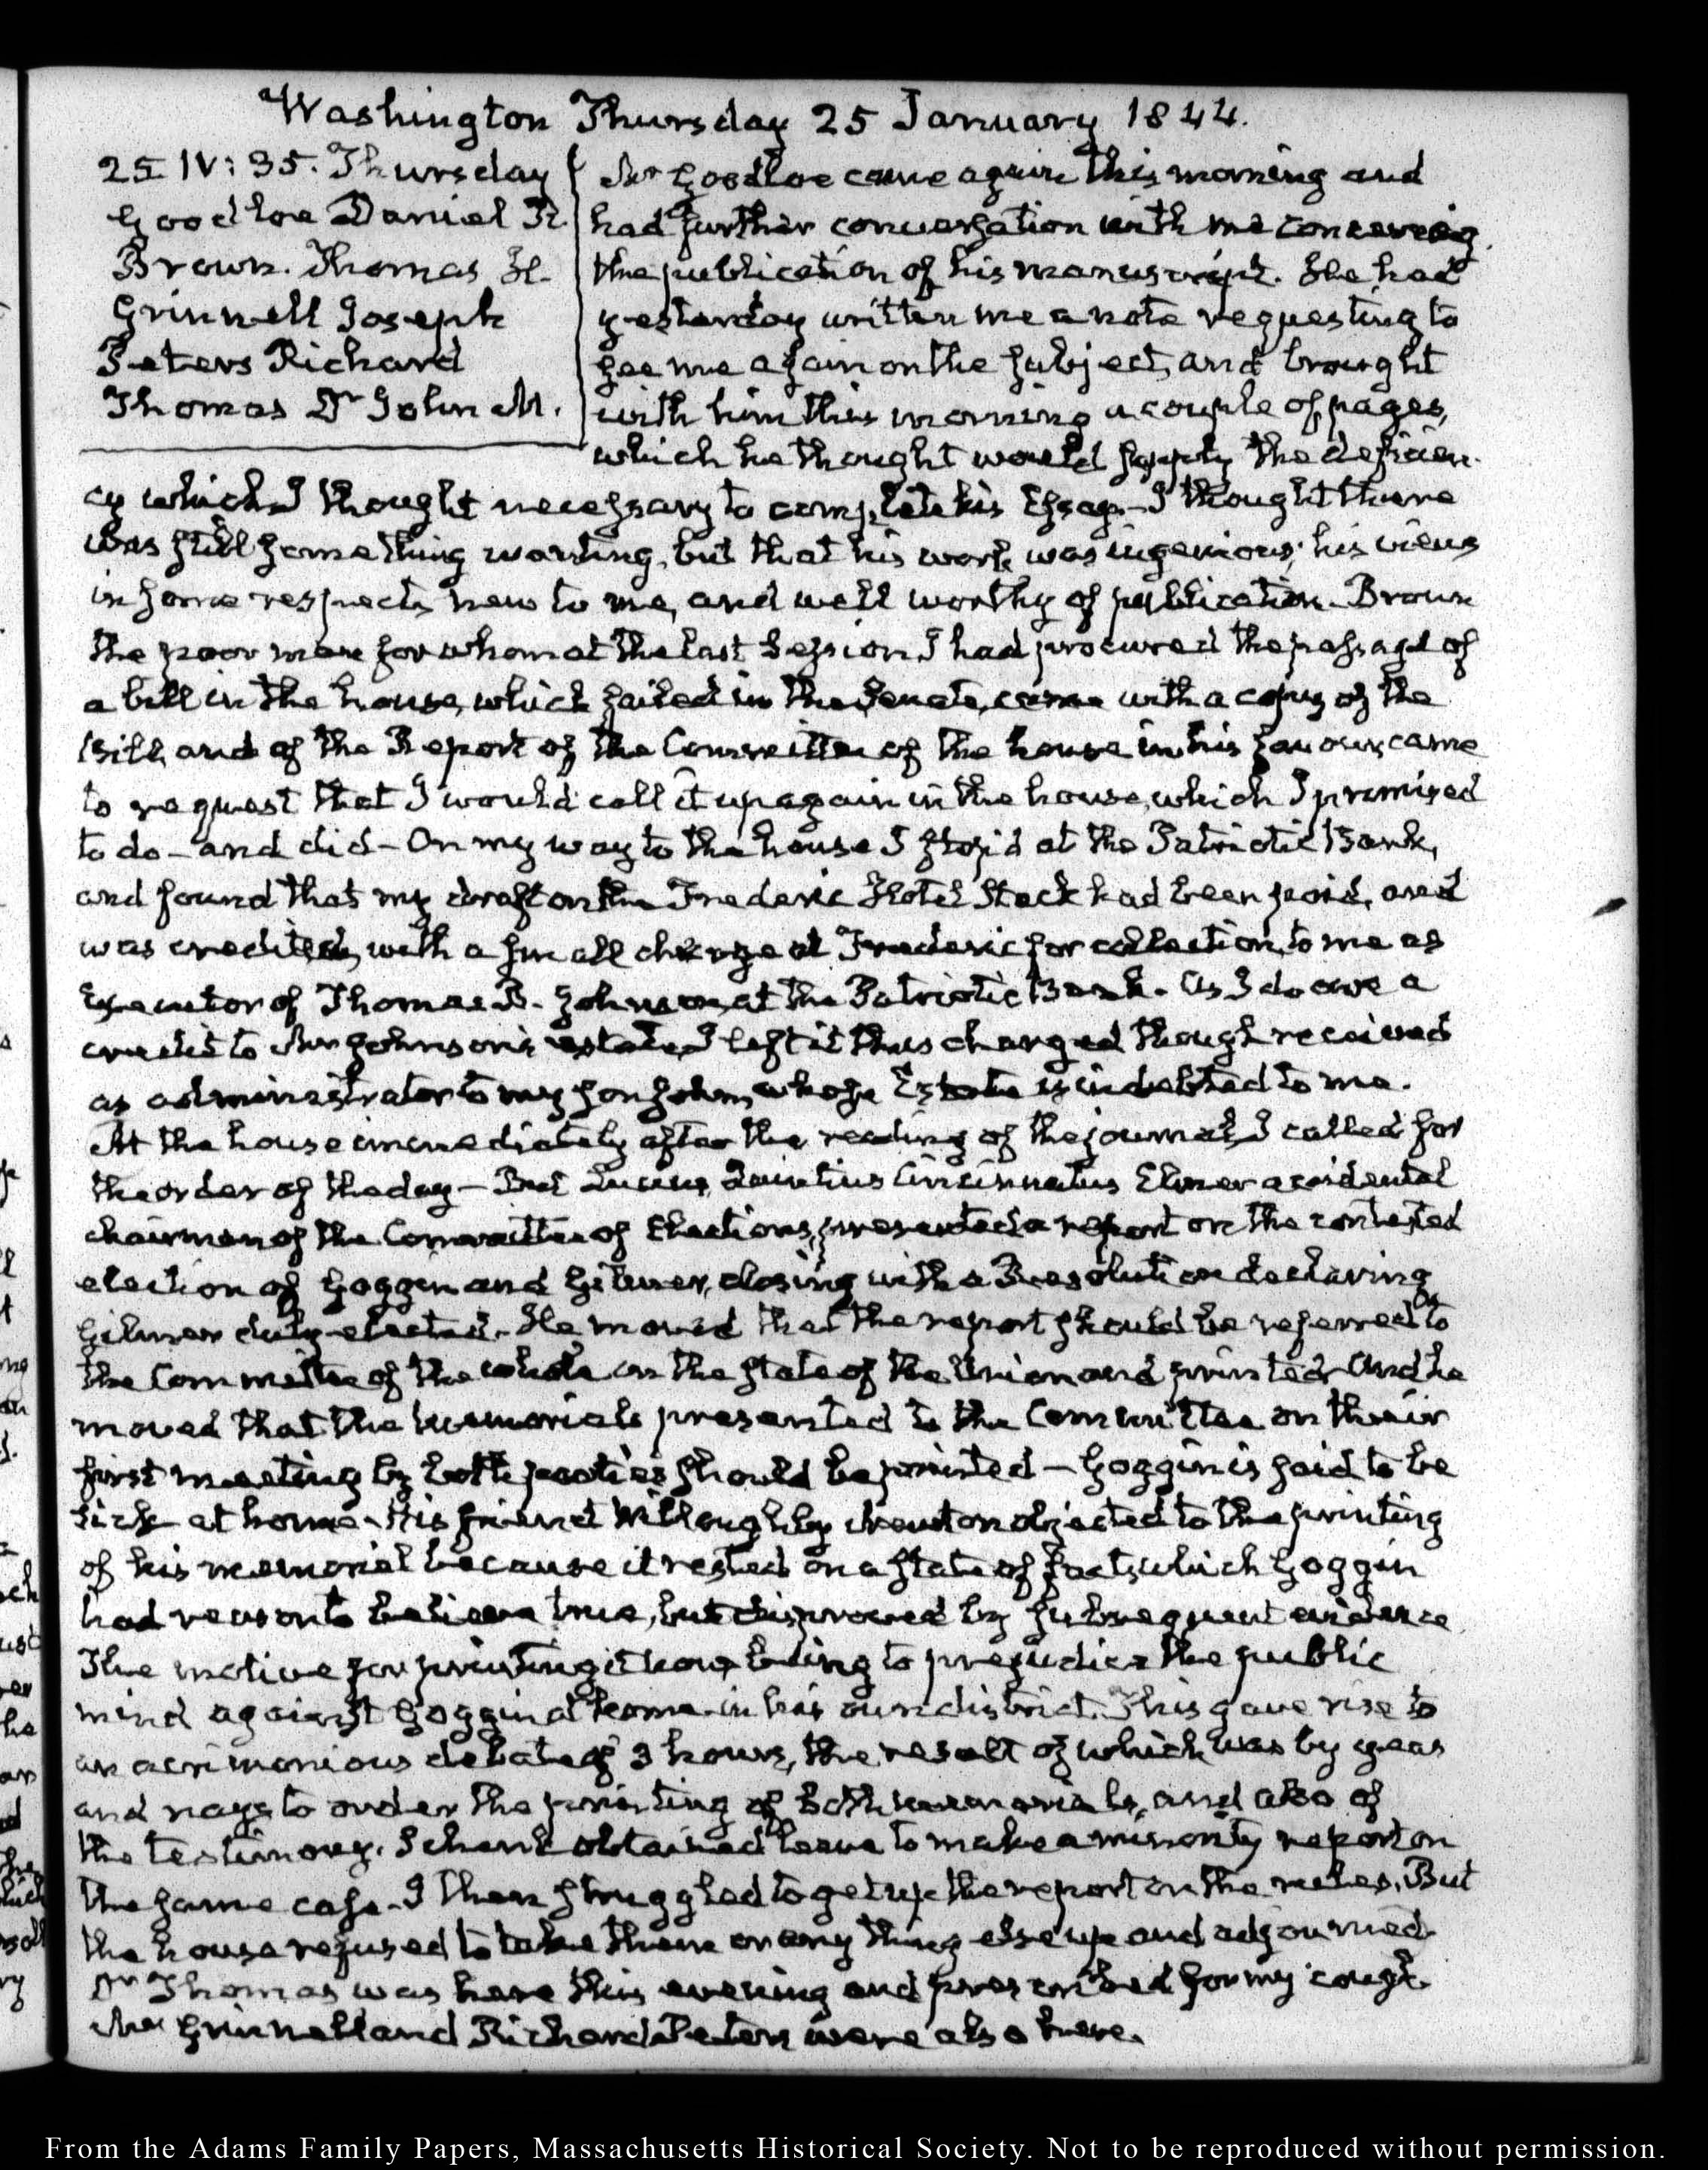 Washington Thursday 25 January 1844.
25 IV: 35. Thursday
Goodloe Daniel R.
Brown. Thomas H.
Grinnell Joseph
Peters Richard
Thomas Dr John M.
Mr Goodloe came again this morning and
had further conversation with me concerning
the publication of his manuscript. He had
yesterday written me a note requesting to
see me again on the subject, and brought
with him this morning a couple of pages,
which he thought would supply the deficien-
cy which I thought necessary to complete his Essay. I thought there
was still something wanting, but that his work was ingenious, his views
in some respects new to me, and well worthy of publication. Brown
the poor man for whom at the last Session I had procured the passage of
a bill in the house, which failed in the Senate, came with a copy of the
Bill and of the Report of the Committee of the house in his favour, came
to request that I would call it up again in the house, which I promised
to do – and did – On my way to the house I stop'd at the Patriotic Bank,
and found that my draft on the Frederic Hotel Stock had been paid, and
was credited, with a small charge at Frederic for collection, to me as
Executor of Thomas B. Johnson, at the Patriotic Bank. As I do owe a
credit to Mr Johnson's estate, I left it thus charged though received
as administrator to my son John, whose Estate is indebted to me.
At the house immediately after the reading of the journal, I called for
the order of the day – But Lucius Quintius Cincinnatus Elmer accidental
chairman of the Committee of Elections, presented a report on the contested
election of Goggin and Gilmer, closing with a Resolution declaring
Gilmer duly elected. He moved that the report should be referred to
the Committee of the whole on the state of the Union and printed – And he
moved that the memorials presented to the Committee on their
first meeting by both parties should be printed – Goggin is said to be
sick at home – His friend Willoughby Newton objected to the printing
of his memorial because it rested on a state of facts, which Goggin
had reason to believe true, but disproved by subsequent evidence
The motive for printing it now, being to prejudice the public
mind against Goggin at home in his own district. This gave rise to
an acrimonious debate of 3 hours, the result of which was by yeas
and nays to order the printing of both memorials, and also of
the testimony. Schenk obtained leave to make a minority report on
the same case. I then struggled to get up the report on the rules, But
the house refused to take them or any thing else up and adjourned
Dr Thomas was here this evening and prescribed for my cough.
Mr Grinnell and Richard Peters were also here.
From the Adams Family Papers, Massachusetts Historical Society. Not to be reproduced without permission.